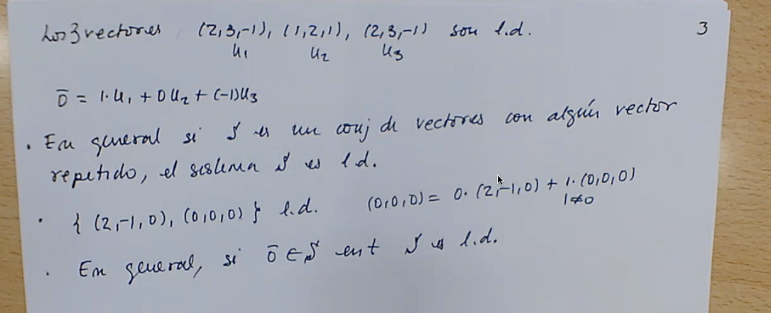 Los 3 vectores (2,3,-1), (1,2,1), (2,3,-1) son l.d. 3
u₁ u₂ u₃
0̅ = 1·u₁ + 0u₂ + (-1)u₃
· En general si S es un conj de vectores con algún vector
repetido, el sistema S es l.d.
· { (2,-1,0), (0,0,0) } l.d. (0,0,0) = 0·(2,-1,0) + 1·(0,0,0)
1≠0
· En general, si 0̅ ∈ S ent S es l.d.